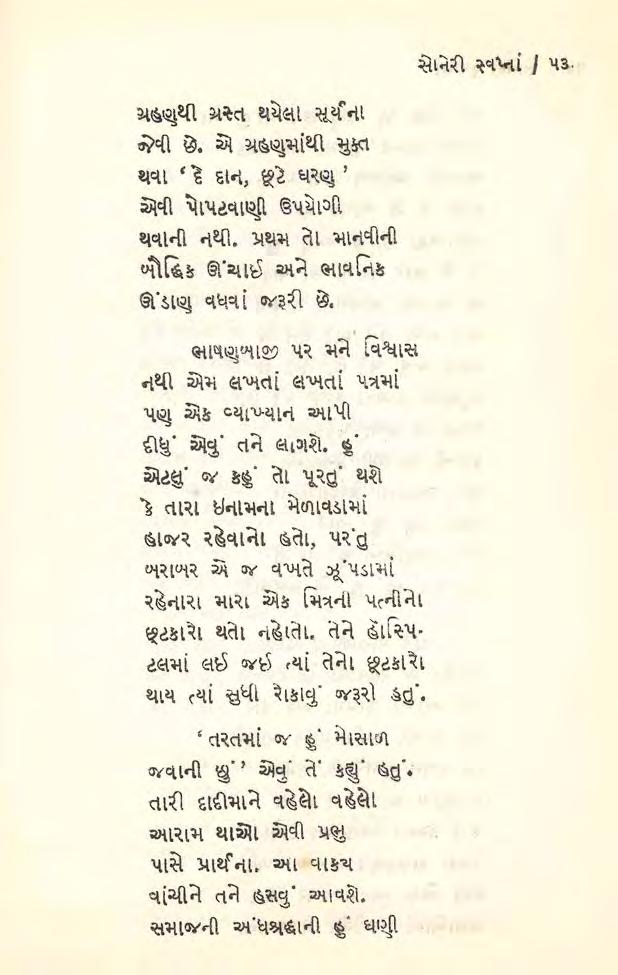 સોનેરી સ્વપ્નાં / ૫૩.
ગ્રહણથી ગ્રસ્ત થયેલા સૂર્યના
જેવી છે. એ ગ્રહણમાંથી મુક્ત
થવા ‘ દે દાન, છૂટે ઘરણ ’
એવી પોપટવાણી ઉપયોગી
થવાની નથી. પ્રથમ તો માનવીની
બૌદ્ધિક ઊંચાઈ અને ભાવનિક
ઊંડાણ વધવાં જરૂરી છે.
ભાષણબાજી પર મને વિશ્વાસ
નથી એમ લખતાં લખતાં પત્રમાં
પણ એક વ્યાખ્યાન આપી
દીધું એવું તને લાગશે. હું
એટલું જ કહું તો પૂરતું થશે
કે તારા ઇનામના મેળાવડામાં
હાજર રહેવાનો હતો, પરંતુ
બરાબર એ જ વખતે ઝૂંપડામાં
રહેનારા મારા એક મિત્રની પત્નીનો
છૂટકારો થતો નહોતો. તેને હૉસ્પિ-
ટલમાં લઈ જઈ ત્યાં તેનો છૂટકારો
થાય ત્યાં સુધી રોકાવું જરૂરી હતું.
‘ તરતમાં જ હું મોસાળ
જવાની છું ’ એવું તેં કહ્યું હતું.
તારી દાદીમાને વહેલો વહેલો
આરામ થાઓ એવી પ્રભુ
પાસે પ્રાર્થના. આ વાક્ય
વાંચીને તને હસવું આવશે.
સમાજની અંધશ્રદ્ધાની હું ઘણી